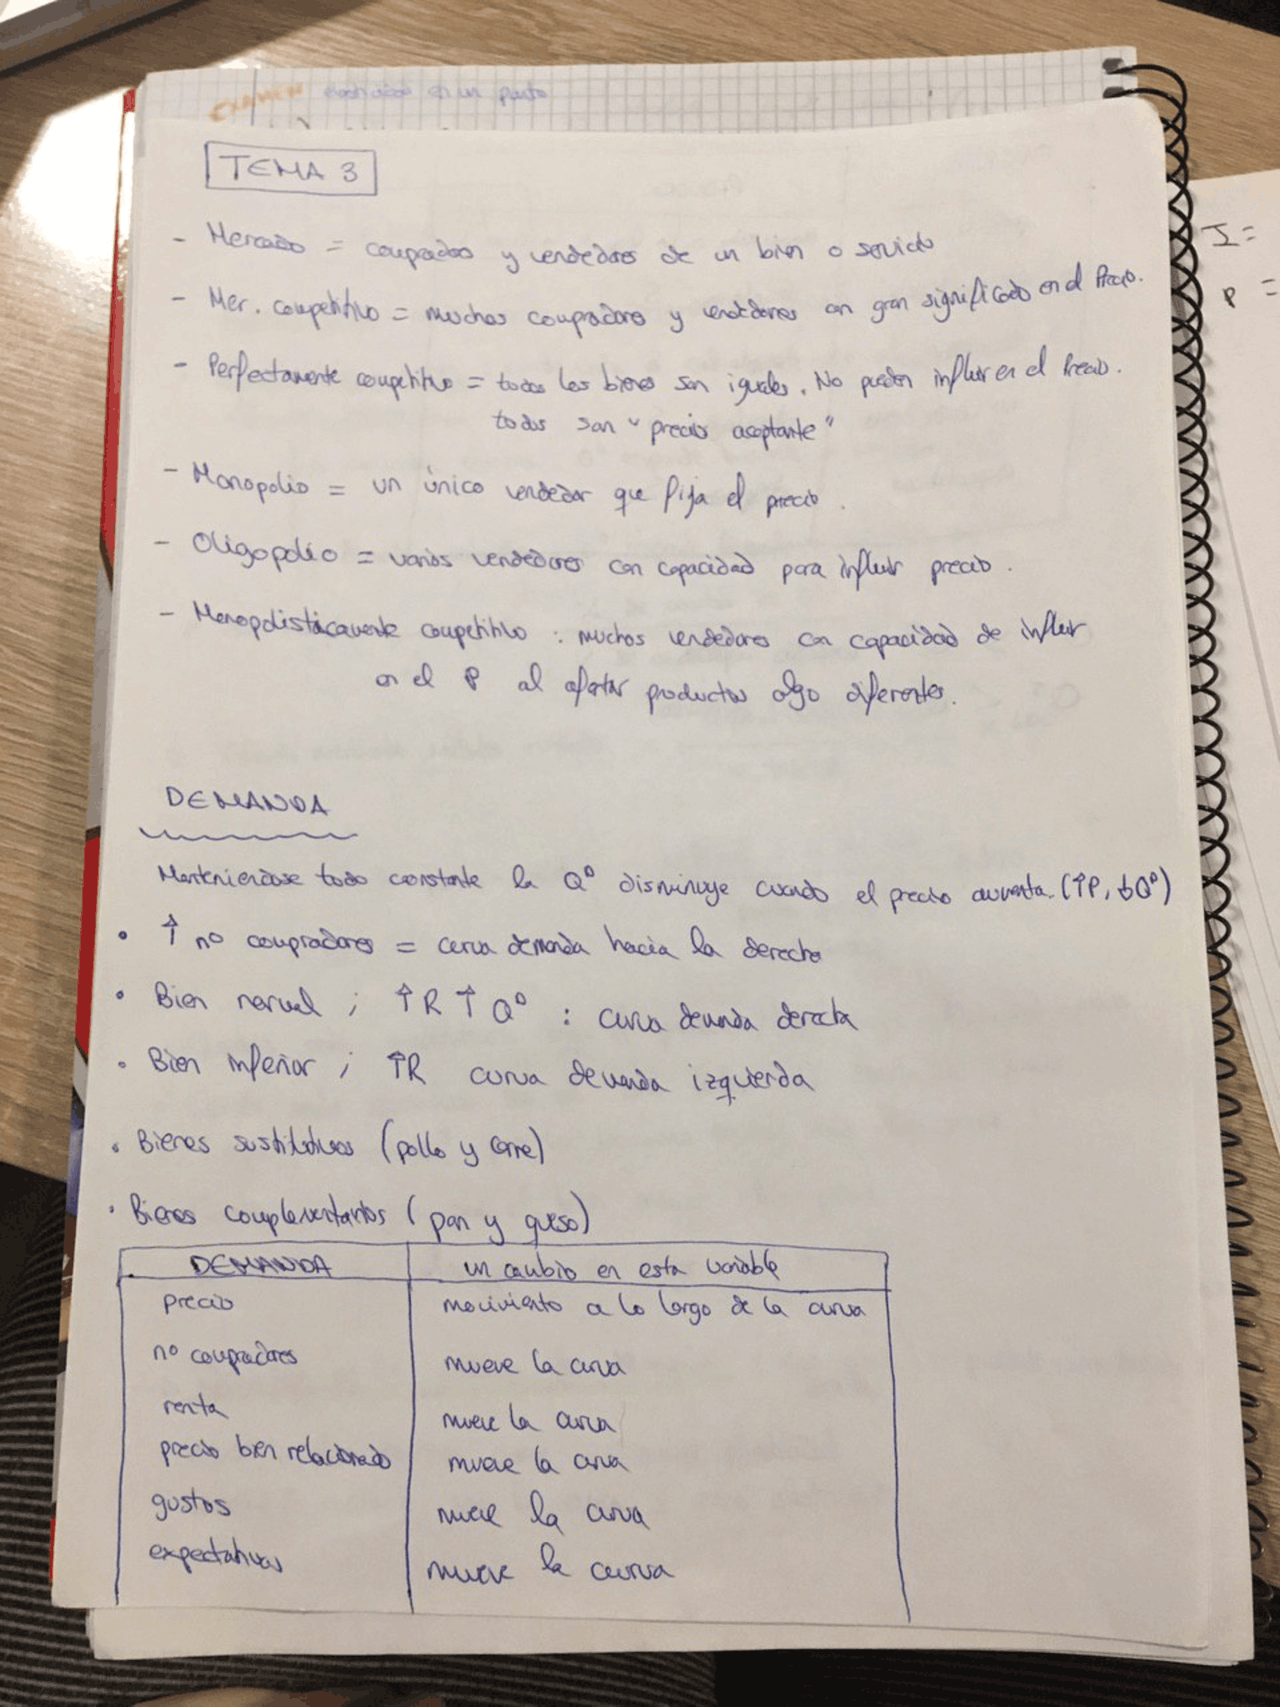 EXAMEN elasticidad en un punto
TEMA 3
- Mercado = compradores y vendedores de un bien o servicio
- Mer. competitivo = muchos compradores y vendedores con gran significado en el Precio.
- Perfectamente competitivo = todos los bienes son iguales. No pueden influir en el Precio.
todos son "precio aceptante"
- Monopolio = un único vendedor que fija el precio.
- Oligopolio = varios vendedores con capacidad para influir precio.
- Monopolísticamente competitivo : muchos vendedores con capacidad de influir
en el P al ofertar productos algo diferentes.
DEMANDA
Manteniendose todo constante la Qᴰ disminuye cuando el precio aumenta. (↑P, ↓Qᴰ)
• ↑ nº compradores = curva demanda hacia la derecha
• Bien normal ; ↑R ↑Qᴰ : curva demanda derecha
• Bien inferior ; ↑R curva demanda izquierda
• Bienes sustitutivos (pollo y carne)
• Bienes complementarios (pan y queso)
DEMANDA un cambio en esta variable
precio movimiento a lo largo de la curva
nº compradores mueve la curva
renta mueve la curva
precio bien relacionado mueve la curva
gustos mueve la curva
expectativas mueve la curva
I =
P =